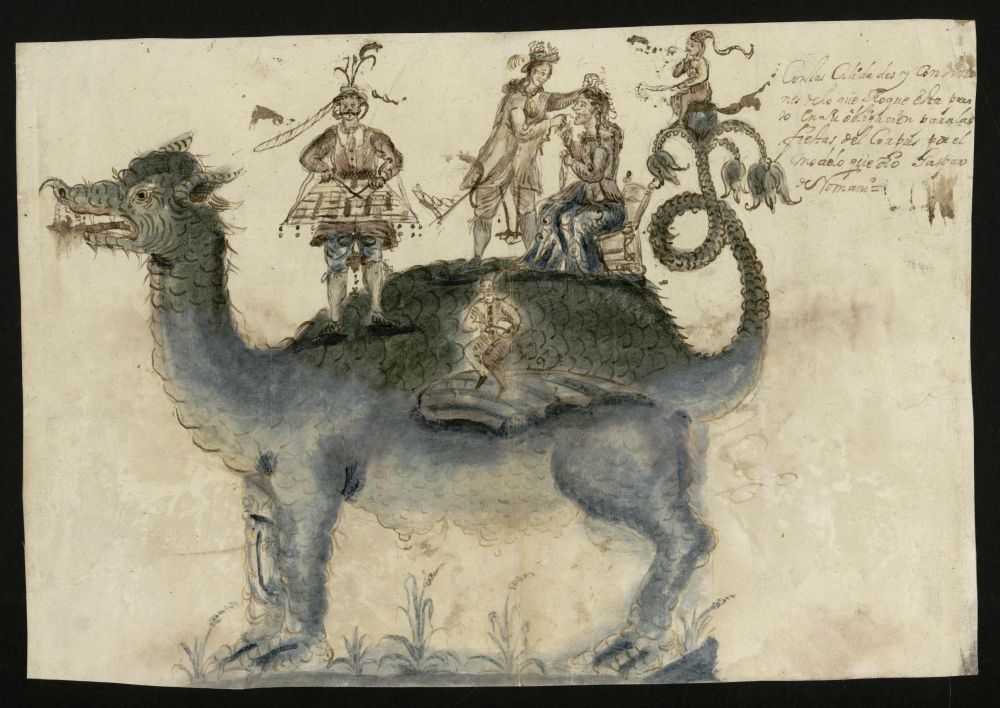 Con las Calidades y Condicio
nes de lo que Roque esta pues
to en su obligacion para las
fiestas del Corpus por el
modelo que dio Gaspar
de Roman